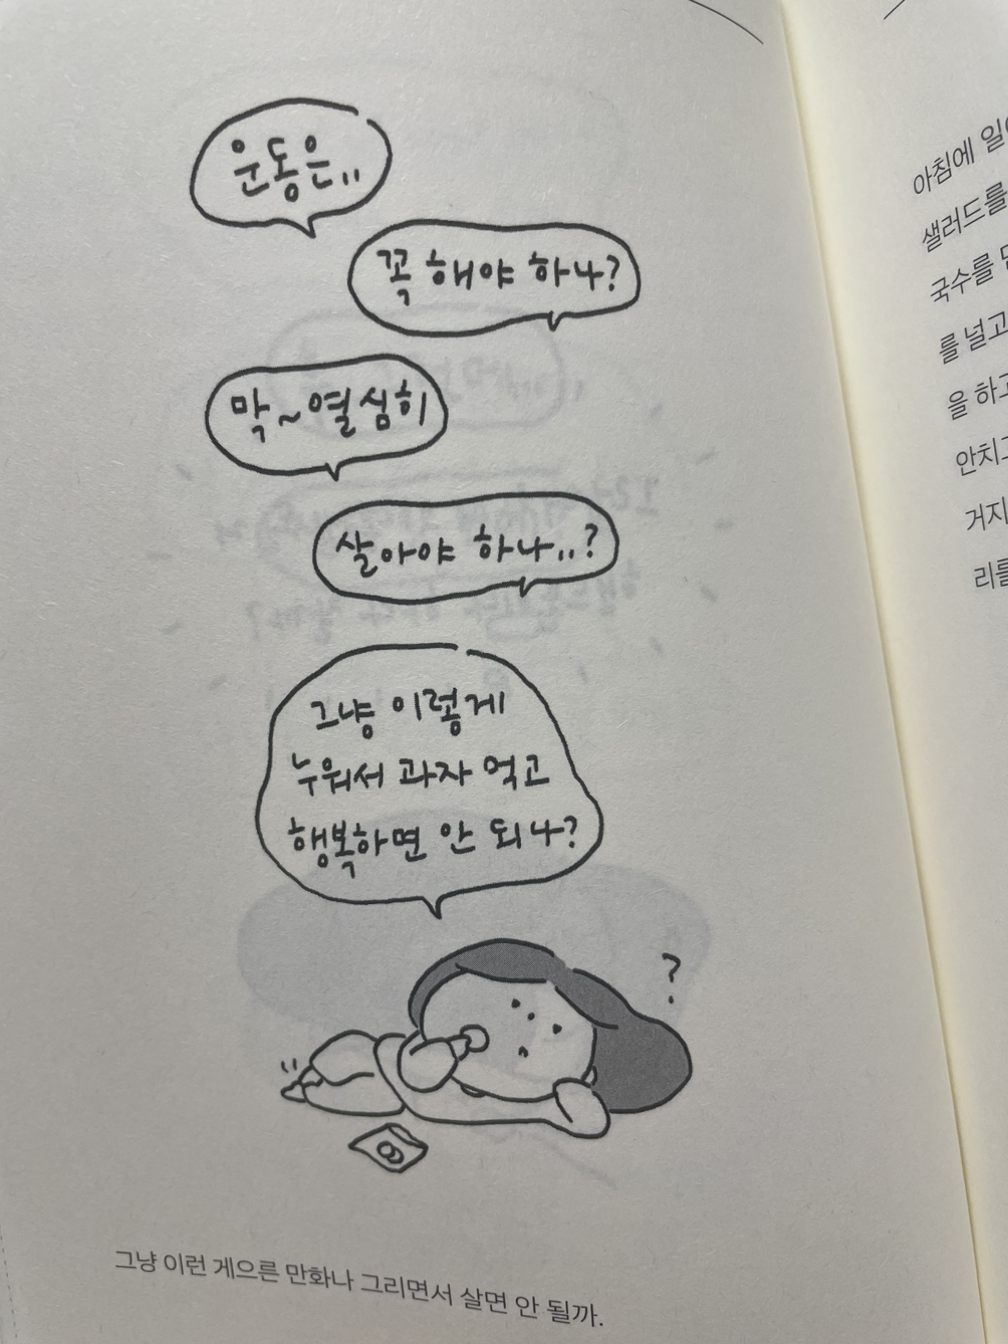 운동은..
꼭 해야 하나?
막~열심히
살아야 하나..?
그냥 이렇게
누워서 과자 먹고
행복하면 안 되나?
?
그냥 이런 게으른 만화나 그리면서 살면 안 될까.
아침에
샐러드를
국수를
를 널고
을 하고
안치고